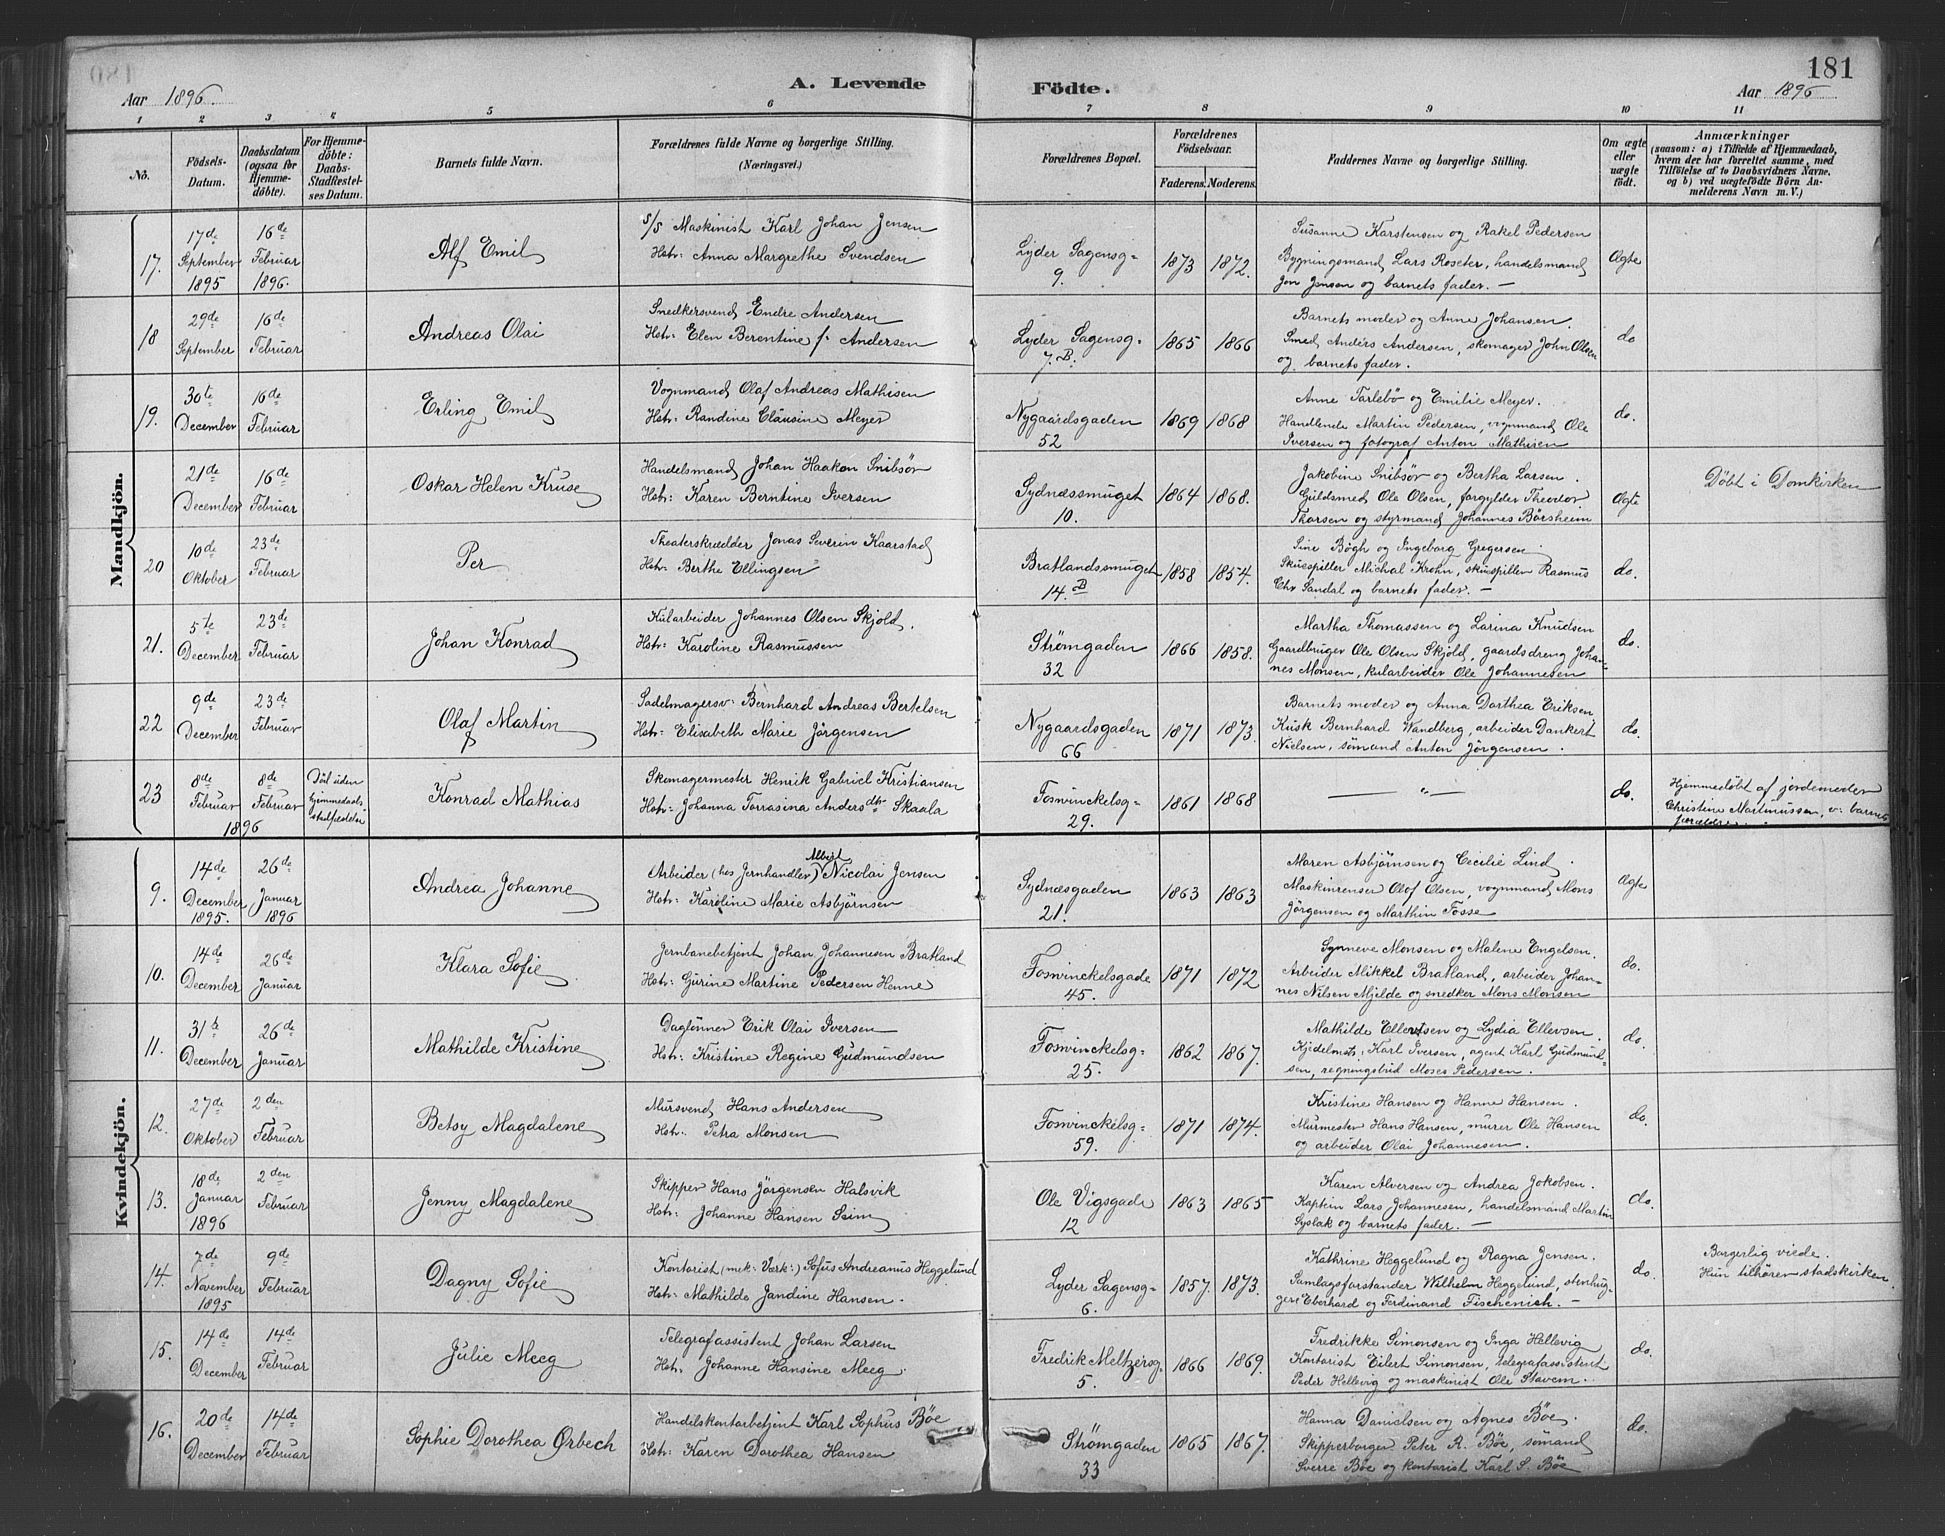 181
Aar 1896. A. Levende Födte. Aar 1896
1 2 3 4 5 6 7 8 9 10 11
No.
Födsels-
Datum.
Daabsdatum
(ogsaa for
Hjemme-
döbte).
For Hjemme-
döbte:
Daabs-
Stadfæstel-
ses Datum.
Barnets fulde Navn.
Forældrenes fulde Navne og borgerlige Stilling.
(Næringsvei.)
Forældrenes Bopæl.
Forældrenes
Födselsaar.
Faderens. Moderens.
Faddernes Navne og borgerlige Stilling.
Om ægte
eller
uægte
födt.
Anmærkninger
(saasom: a) i Tilfælde af Hjemmedaab,
hvem der har forrettet samme, med
Tilföielse af to Daabsvidners Navne,
og b) ved uægtefödte Börn An-
melderens Navn m. V.)
Mandkjön.
17. 17de September 1895
16de Februar 1896.
Alf Emil
S/S Maskinist Karl Johan Jensen
Hstr: Anna Margrethe Svendsen
Lyder Sagensg-
9.
1873 1872.
Susanne Karstensen og Rakel Pedersen
Bygningsmand Lars Roseter, handelsmand
Jon Jensen og barnets fader. —
Ægte
18 29de September
16de Februar
Andreas Olai
Snedkersvend Endre Andersen
Hstr: Elen Berentine f. Andersen
Lyder Sagensg-
7.B.
1865 1866
Barnets moder og Anne Johansen.
Smed Anders Andersen, skomager John Olsen
og barnets fader.
do
19. 30te December
16de Februar
Erling Emil
Vognmand Olaf Andreas Mathisen
Hstr: Randine Clausine Meyer
Nygaardsgaden
52
1869 1868
Anne Tarlebø og Emilie Meyer.
Handlende Martin Pedersen, vognmand Ole
Iversen og fotograf Anton Mathisen
do.
21de December
16de Februar
Oskar Helen Kruse
Handelsmand Johan Haakon Snibsør
Hstr: Karen Berntine Iversen
Sydnæssmuget
10.
1864 1868.
Jakobine Snibsør og Bertha Larsen.
Guldsmed Ole Olsen, forgylder Theodor
Thorsen og styrmand Johannes Børsheim
Ægte
Döbt i Domkirken
20 10de Oktober
23de Februar
Per
Theaterskrædder Jonas Severin Kaarstad
Hstr: Berthe Ellingsen
Bratlandssmuget
14.B
1858 1854.
Sine Bögh og Ingeborg Gregersen
Skuespiller Michal Krohn, skuespiller Rasmus
Chr Sandal og barnets fader. —
do.
21. 5te December
23de Februar
Johan Konrad
Kularbeider Johannes Olsen Skjold.
Hstr: Karoline Rasmussen
Strømgaden
32
1866 1858.
Martha Thomassen og Larina Knudsen
Gaardbruger Ole Olsen Skjold, gaardsdreng Johan-
nes Monsen, kularbeider Ole Johannesen
do.
22 9de December
23de Februar
Olaf Martin
Sadelmagersv: Bernhard Andreas Bertelsen
Hstr: Elisabeth Marie Jörgensen
Nygaardsgaden
66
1871 1873.
Barnets moder og Anna Dorthea Eriksen
Kusk Bernhard Wandberg, arbeider Dankert
Nielsen, sömand Anton Jörgensen.
do.
23 8de Februar
8de Februar
1896
Död uden
hjemmedaabs
stadfæstelse
Konrad Mathias
Skomagermester Henrik Gabriel Kristiansen
Hstr: Johanna Torrasina Andersdtr Skaala
Fosvinckelsg-
29.
1861 1868
— " —
do.
Hjemmedöbt af jordemoder
Christine Martinussen, v: barnets
forældre
Kvindekjön.
9. 14de December 1895.
26de Januar 1896
Andrea Johanne
Albert
Arbeider (hos Jernhandler) Nicolai Jensen
Hstr: Karoline Marie Asbjörnsen
Sydnæsgaden
21.
1863 1863
Maren Asbjörnsen og Cecilie Lind.
Maskinrenser Olaf Olsen, vognmand Mons
Jörgensen og Marthin Fosse
Ægte
10. 14de December
26de Januar
Klara Sofie
Jernbanebetjent Johan Johannesen Bratland
Hstr: Gurine Martine Pedersen Henne
Fosvinckelsgade
45.
1871 1872
Synneve Monsen og Malene Engelsen.
Arbeider Mikkel Bratland, arbeider Johan-
nes Nilsen Mjelde og snedker Mons Monsen
do.
11. 31te December
26de Januar
Mathilde Kristine
Daglönner Erik Olai Iversen
Hstr: Kristine Regine Gudmundsen
Fosvinckelsg-
25.
1862 1867.
Mathilde Ellertsen og Lydia Ellevsen.
Kjedelmstr: Karl Iversen, agent Karl Gudmund-
sen, regningsbud Moses Pedersen.
do.
12. 27de Oktober
2den Februar
Betsy Magdalene
Mursvend Hans Andersen
Hstr: Petra Monsen
Fosvinckelsg-
59.
1871 1874.
Kristine Hansen og Hanne Hansen.
Murmester Hans Hansen, murer Ole Hansen
og arbeider Olai Johannesen.
do.
13. 18de Januar 1896
2den Februar
Jenny Magdalene
Skipper Hans Jörgensen Halsvik
Hstr: Johanne Hansen Seim
Ole Vigsgade
12
1863 1865
Karen Alversen og Andrea Jakobsen.
Kaptein Lars Johannesen, handelsmand Martin
Syslak og barnets fader. —
do.
14. 7de November 1895
9de Februar
Dagny Sofie
Kontorist (mek: Værk:) Sofus Andreanus Heggelund
Hstr: Mathilde Jandine Hansen.
Lyder Sagensg-
6.
1857. 1873.
Kathrine Heggelund og Ragna Jensen.
Samlagsforstander Wilhelm Heggelund, stenhug-
gere Eberhard og Ferdinand Fischenich. —
do.
Borgerlig viede.
Hun tilhörer stadskirken.
15. 14de December
14de Februar
Julie Meeg
Telegrafassistent Johan Larsen
Hstr. Johanne Hansine Meeg.
Fredrik Meltzersg.
5.
1866 1869.
Fredrikke Simonsen og Inga Hellevig
Kontorist Eilert Simonsen, telegrafassistent
Peder Hellevig og maskinist Ole Stavem.
do.
16. 20de December
14de Februar
Sophie Dorothea Ørbech
Handelskontorbetjent Karl Sophus Böe
Hstr: Karen Dorothea Hansen
Strömgaden
33
1865 1867.
Hanna Danielsen og Agnes Böe.
Skipperborger Peter A. Böe, sömand
Sverre Böe og kontorist Karl S. Böe
do.